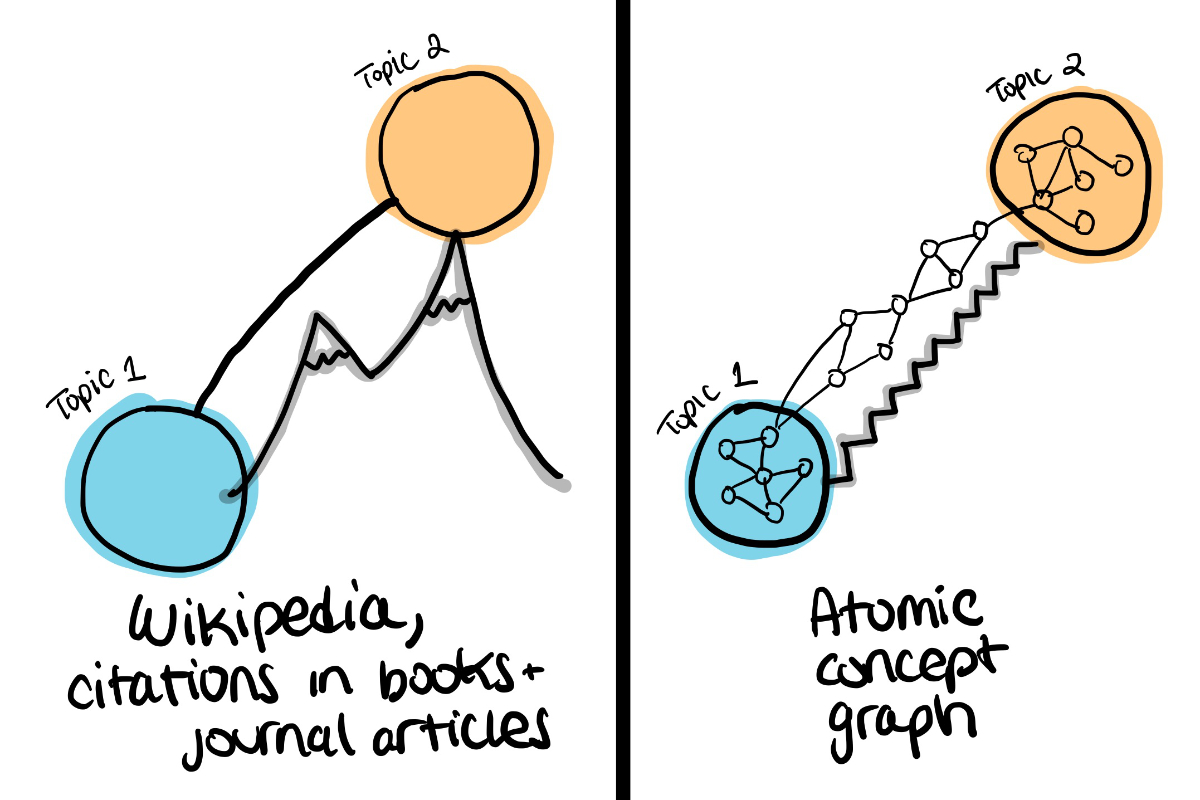 Topic 2
Topic 1
Wikipedia,
citations in books +
journal articles
Topic 2
Topic 1
Atomic
concept
graph